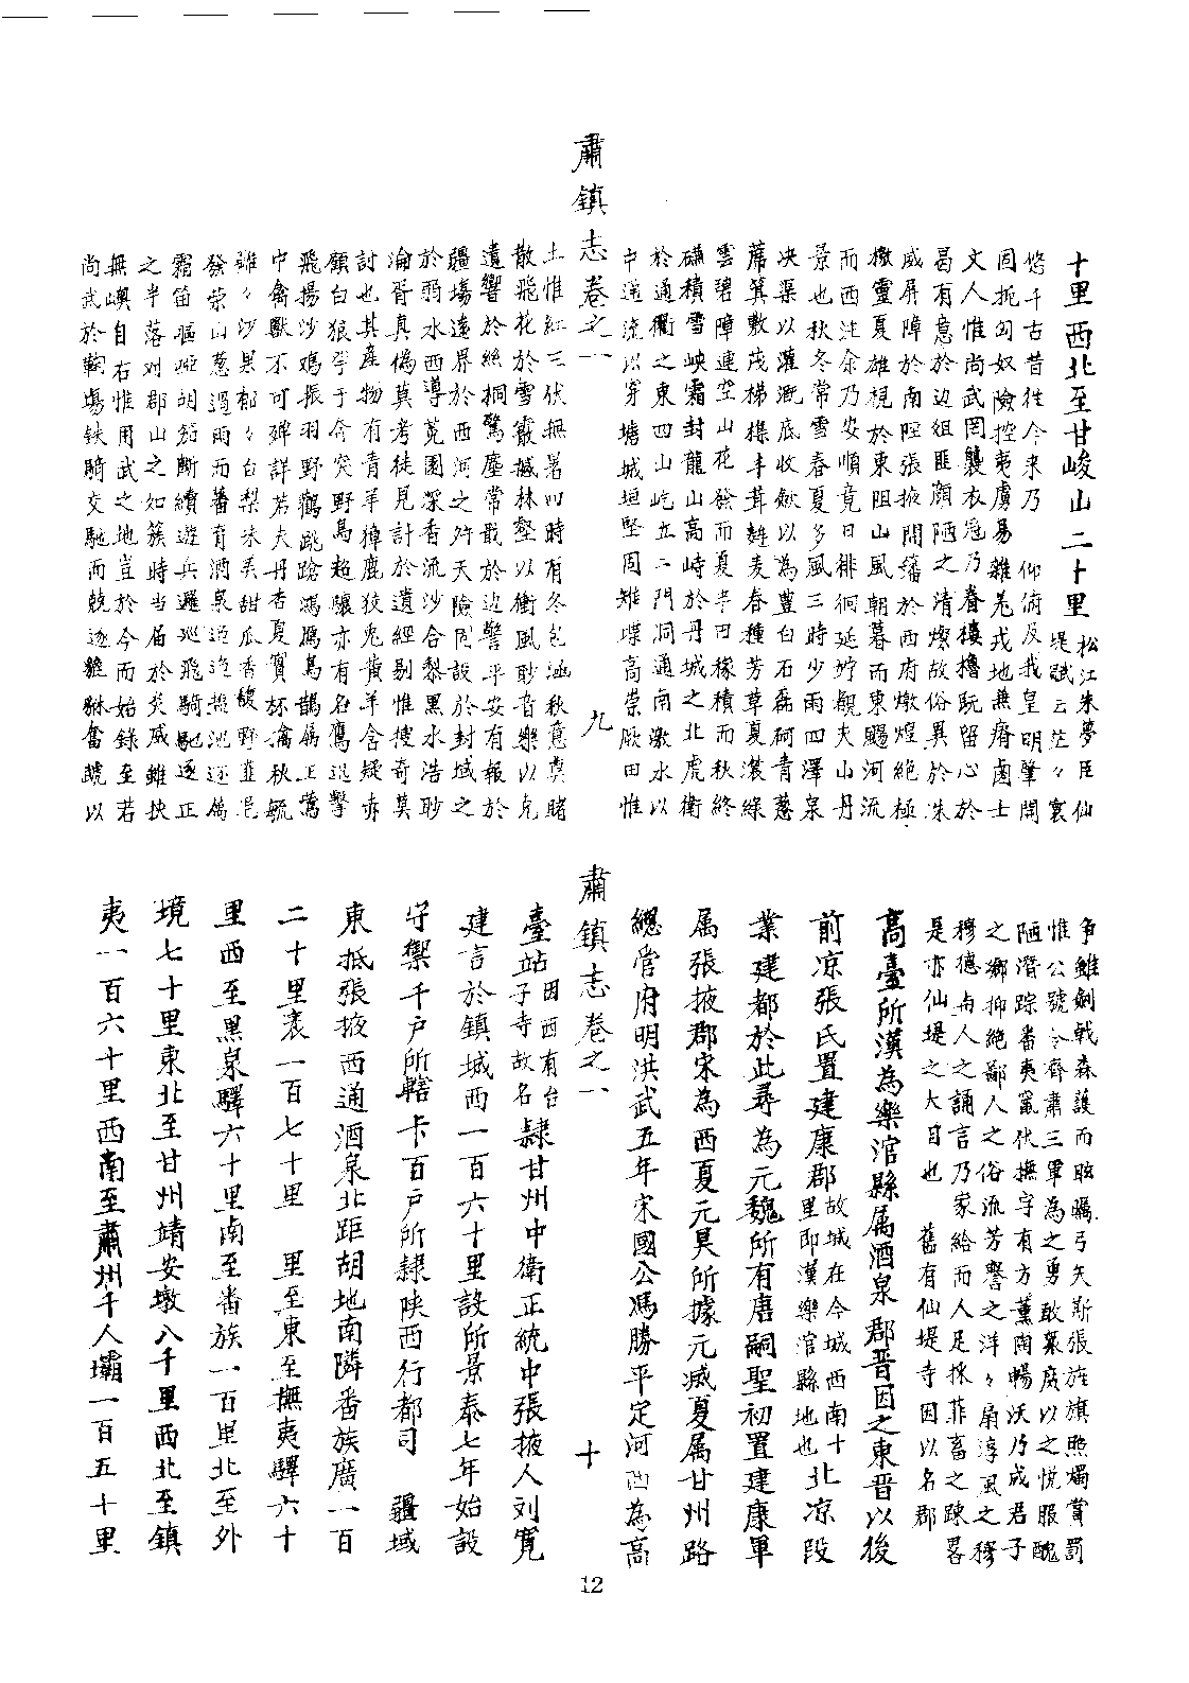 十里西北至甘峻山二十里松江朱夢臣仙
堤賦云茫々寰
悠千古昔往今来乃 仰俯及我皇明肇開
囯扼匈奴險控夷虜易雜羌戎地無瘠鹵士
文人惟尚武罔襲衣冠乃眷樓櫓既留心於
曷有意於边俎匪顔陋之清燦故俗異於洙
威屏障於南陘張掖閫藩於西府燉煌絕極
檄靈夏雄視於東阻山風朝暮而東賜河流
而西注余乃安順竟日徘徊延竚觀夫山丹
景也秋冬常雪春夏多風三時少雨四澤泉
决渠以灌溉底收歛以為豊白石磊砢青蔥
蓆箕敷茂梯橾丰茸麰麦春種芳草夏濃綠
雲碧障連空山花發而夏半田稼積而秋終
磏積雪峽霜封龍山高峙於丹城之北虎衛
於通衢之東四山屹立二門洞通南激水以
中通流以穿塘城垣堅固雉堞高崇厥田惟
肅鎮志卷之一 九
土惟紅三伏無暑四時有冬色涵秋意莫睹
散飛花於雪霰撼林壑以衝風聆音樂以克
遺響於絲桐驚塵常戢於边警平安有報於
疆埸遠界於西河之㳂天險囙設於封域之
於弱水西導菟圃深香流沙合黎黑水浩眇
淪胥真偽莫考徒見計於遺經剔惟搜奇莫
討也其產物有青羊獐鹿狡兎黄羊含疑赤
願白狼孛于含突野馬超驤亦有名鷹迅擊
飛揚沙鴻振羽野鸛跳蹌鴻鴈鳥鵲属玉鶯
中禽獸不可殫詳若夫丹杏夏實杯禽秋毓
雖々沙果郁々白梨味美甜瓜香馥野韮邑
發崇山葱遇雨而蕃育酒泉
霜笛嘔啞胡笳斷續遊兵邏巡飛騎馳逐正
之半落对郡山之如簇時当届於炎威雖挾
無嶼自右惟用武之地豈於今而始錄至若
尚武於鞠塲铁騎交馳而兢逐貔貅奮蹏以
肅鎮志卷之一 十
争雖劍戟森護而眩矚弓矢斯張旌旗照燭賞罰
惟公號令齊肃三軍為之勇敢裹廣以之悅服醜
陋潛踪番夷竄伏撫字有方薰陶暢沃乃成君子
之鄉抑絶鄙人之俗流芳譽之洋々扇淳風之穆
穆德甫人之誦言乃家給而人足採菲畜之踈畧
是亦仙堤之大目也 舊有仙堤寺因以名郡
高臺所漢為樂涫縣属酒泉郡晋因之東晋以後
前凉張氏置建康郡故城在今城西南十
里即漢樂涫縣地也北凉段
業建都於此尋為元魏所有唐嗣聖初置建康軍
属張掖郡宋為西夏元昊所據元滅夏属甘州路
總管府明洪武五年宋國公馮勝平定河西為高
臺站因西有台
子寺故名隷甘州中衛正統中張掖人刘寬
建言於鎮城西一百六十里設所景泰七年始設
守禦千戶所轄卡百戶所隷陕西行都司 疆域
東抵張掖西通酒泉北距胡地南隣番族廣一百
二十里袤一百七十里 里至東至撫夷驛六十
里西至黑泉驛六十里南至番族一百里北至外
境七十里東北至甘州靖安墩八千里西北至鎮
夷一百六十里西南至肅州千人壩一百五十里
12